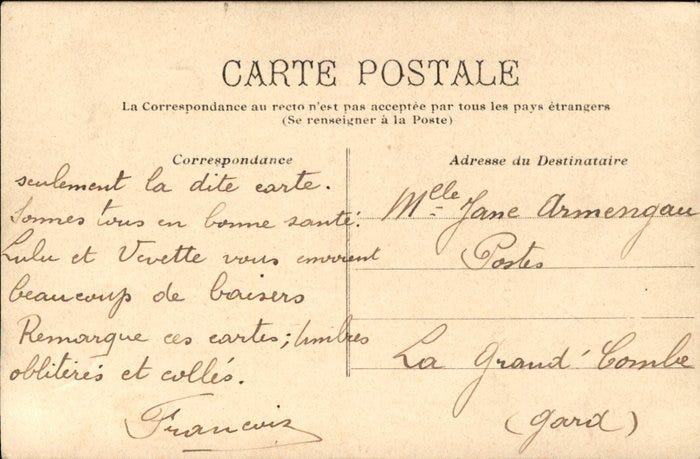 CARTE POSTALE
La Correspondance au recto n'est pas acceptée par tous les pays étrangers
(Se renseigner à la Poste)
Correspondance
seulement la dite carte.
Sommes tous en bonne santé.
Lulu et Vevette vous envoient
beaucoup de baisers
Remarque ces cartes; timbres
oblitérés et collés.
François
Adresse du Destinataire
Mlle Jane Armengau
Postes
La Grand'Combe
(Gard)